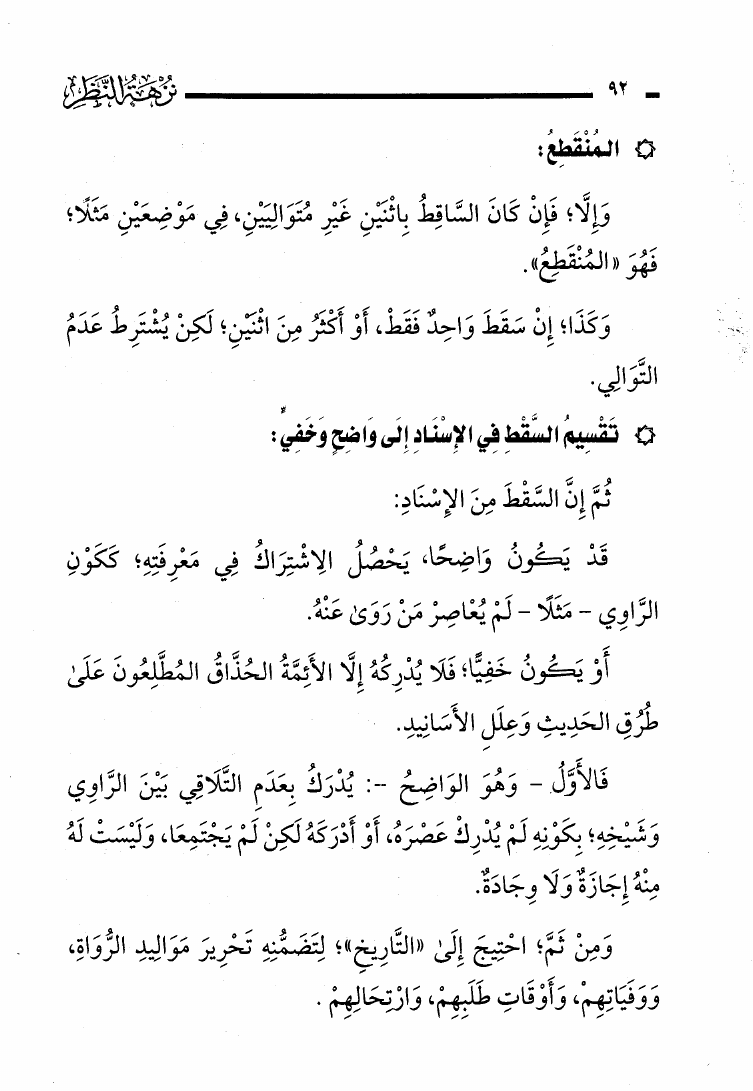 ٩٢ نُزْهَةُ النَّظَرِ
المُنْقَطِعُ:
وَإِلَّا؛ فَإِنْ كَانَ السَّاقِطُ بِاثْنَيْنِ غَيْرِ مُتَوَالِيَيْنِ، فِي مَوْضِعَيْنِ مَثَلًا؛
فَهُوَ «المُنْقَطِعُ».
وَكَذَا؛ إِنْ سَقَطَ وَاحِدٌ فَقَطْ، أَوْ أَكْثَرُ مِنَ اثْنَيْنِ؛ لَكِنْ يُشْتَرِطُ عَدَمُ
التَّوَالِي.
تَقْسِيمُ السَّقْطِ فِي الإِسْنَادِ إِلَى وَاضِحٍ وَخَفِيٍّ:
ثُمَّ إِنَّ السَّقْطَ مِنَ الإِسْنَادِ:
قَدْ يَكُونُ وَاضِحًا، يَحْصُلُ الِاشْتِرَاكُ فِي مَعْرِفَتِهِ؛ كَكَوْنِ
الرَّاوِي - مَثَلًا - لَمْ يُعَاصِرْ مَنْ رَوَىٰ عَنْهُ.
أَوْ يَكُونُ خَفِيًّا؛ فَلَا يُدْرِكُهُ إِلَّا الأَئِمَّةُ الحُذَّاقُ المُطَّلِعُونَ عَلَىٰ
طُرُقِ الحَدِيثِ وَعِلَلِ الأَسَانِيدِ.
فَالأَوَّلُ - وَهُوَ الوَاضِحُ -: يُدْرَكُ بِعَدَمِ التَّلَاقِي بَيْنَ الرَّاوِي
وَشَيْخِهِ؛ بِكَوْنِهِ لَمْ يُدْرِكْ عَصْرَهُ، أَوْ أَدْرَكَهُ لَكِنْ لَمْ يَجْتَمِعَا، وَلَيْسَتْ لَهُ
مِنْهُ إِجَازَةٌ وَلَا وِجَادَةٌ.
وَمِنْ ثَمَّ؛ احْتِيجَ إِلَىٰ «التَّارِيخِ»؛ لِتَضَمُّنِهِ تَحْرِيرَ مَوَالِيدِ الرُّوَاةِ،
وَوَفَيَاتِهِمْ، وَأَوْقَاتِ طَلَبِهِمْ، وَارْتِحَالِهِمْ .